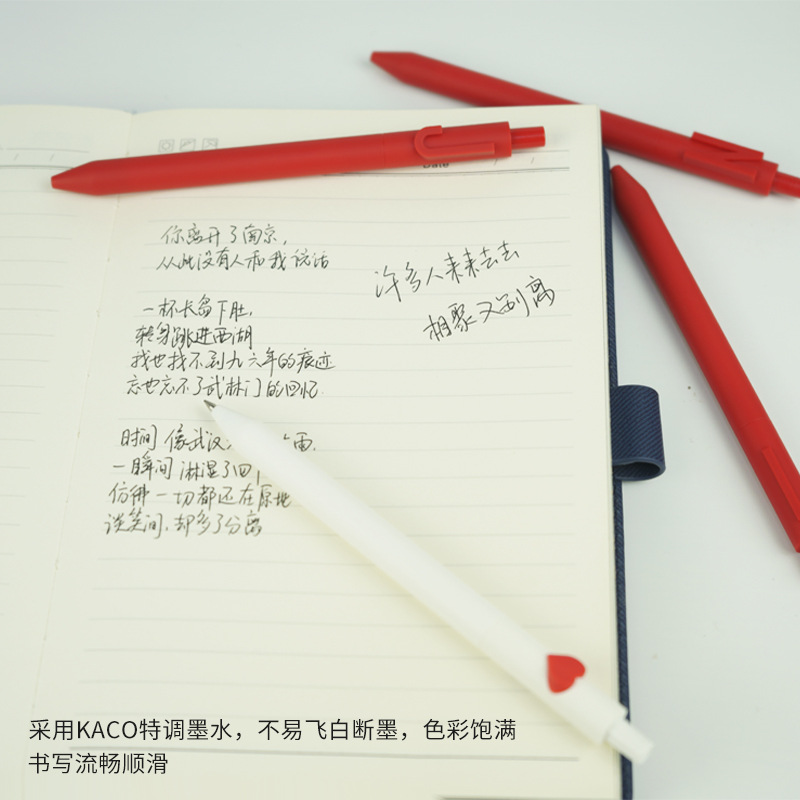 Date / /
你离开了南京，
从此没有人和我说话
许多人来来去去
相聚又别离
一杯长岛下肚，
转身跳进西湖
我也找不到九六年的痕迹
忘也忘不了武林门的回忆
时间像武汉 雨，
一瞬间淋湿了四
仿佛一切都还在原地
谈笑间，却多了分离
采用KACO特调墨水，不易飞白断墨，色彩饱满
书写流畅顺滑